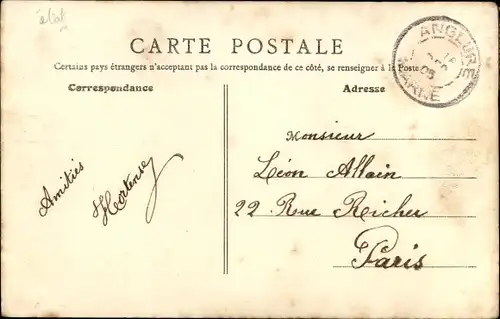 état
CARTE POSTALE
Certains pays étrangers n'acceptant pas la correspondance de ce côté, se renseigner à la Poste
Correspondance
Adresse
ANGLURE
MARNE
08
Amitiés
Hortense
Monsieur
Léon Allain
22 Rue Richer
Paris